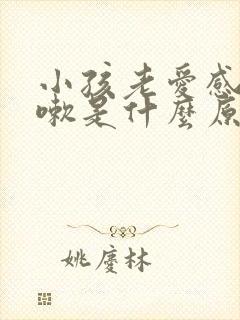 小孩老愛感
嗽是什麼原
姚慶林